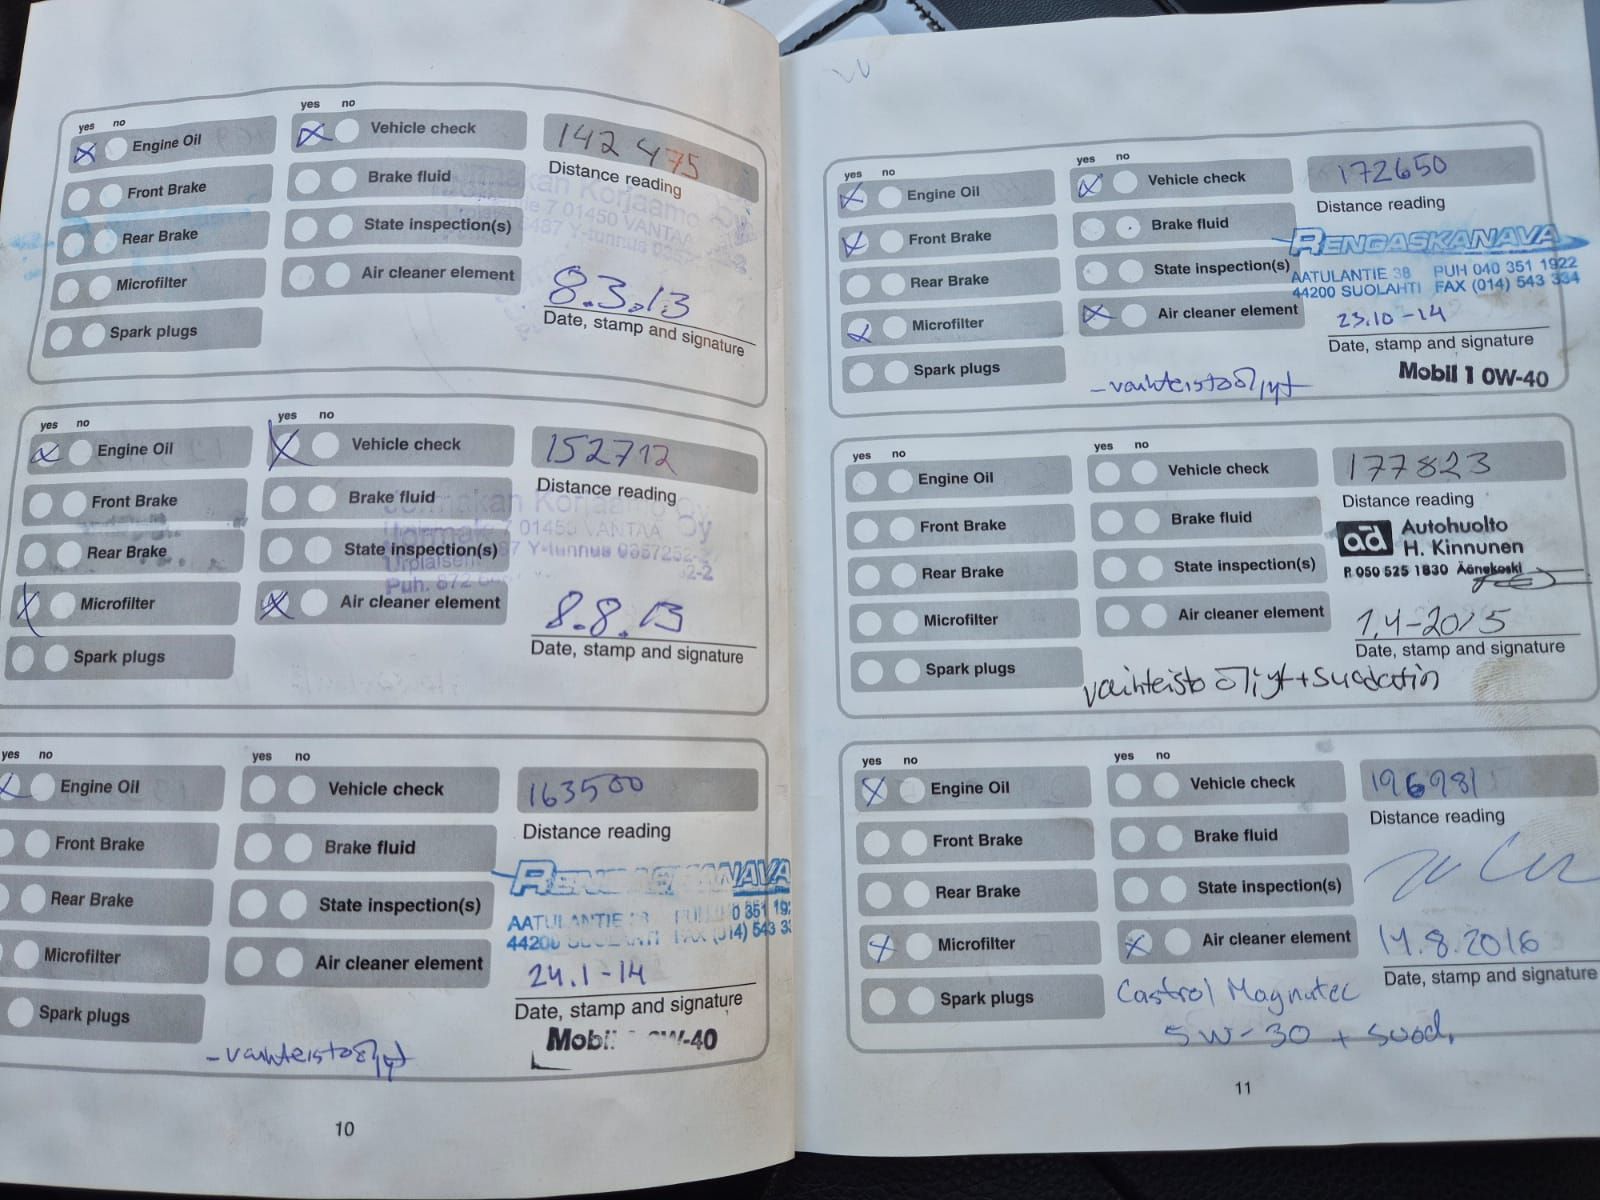 yes no
yes no
Engine Oil
Vehicle check
142 475
Distance reading
Front Brake
Brake fluid
Rear Brake
State inspection(s)
Microfilter
Air cleaner element
Spark plugs
Korjaamo Oy
7 01450 VANTAA
Y-tunnus
8.3.13
Date, stamp and signature
yes no
yes no
Engine Oil
Vehicle check
152712
Distance reading
Front Brake
Brake fluid
Rear Brake
State inspection(s)
Microfilter
Air cleaner element
Spark plugs
Korjaamo Oy
7 01450 VANTAA
Y-tunnus 0357252-2
Puh. 872
8.8.13
Date, stamp and signature
yes no
yes no
Engine Oil
Vehicle check
163500
Distance reading
Front Brake
Brake fluid
Rear Brake
State inspection(s)
Microfilter
Air cleaner element
Spark plugs
RENGASKANAVA
AATULANTIE 38 PUH 040 351 19
44200 SUOLAHTI FAX (014) 543 33
24.1-14
Date, stamp and signature
Mobil 1 0W-40
-vaihteistoöljyt
10
yes no
yes no
Engine Oil
Vehicle check
172650
Distance reading
Front Brake
Brake fluid
Rear Brake
State inspection(s)
Microfilter
Air cleaner element
Spark plugs
RENGASKANAVA
AATULANTIE 38 PUH 040 351 1922
44200 SUOLAHTI FAX (014) 543 334
23.10-14
Date, stamp and signature
Mobil 1 0W-40
-vaihteistoöljyt
yes no
yes no
Engine Oil
Vehicle check
177823
Distance reading
Front Brake
Brake fluid
Rear Brake
State inspection(s)
Microfilter
Air cleaner element
Spark plugs
ad Autohuolto
H. Kinnunen
P. 050 525 1830 Äänekoski
1.4-2015
Date, stamp and signature
vaihteisto öljyt+suodatin
yes no
yes no
Engine Oil
Vehicle check
196981
Distance reading
Front Brake
Brake fluid
Rear Brake
State inspection(s)
Microfilter
Air cleaner element
Spark plugs
14.8.2016
Date, stamp and signature
Castrol Magnatec
5W-30 + suod.
11